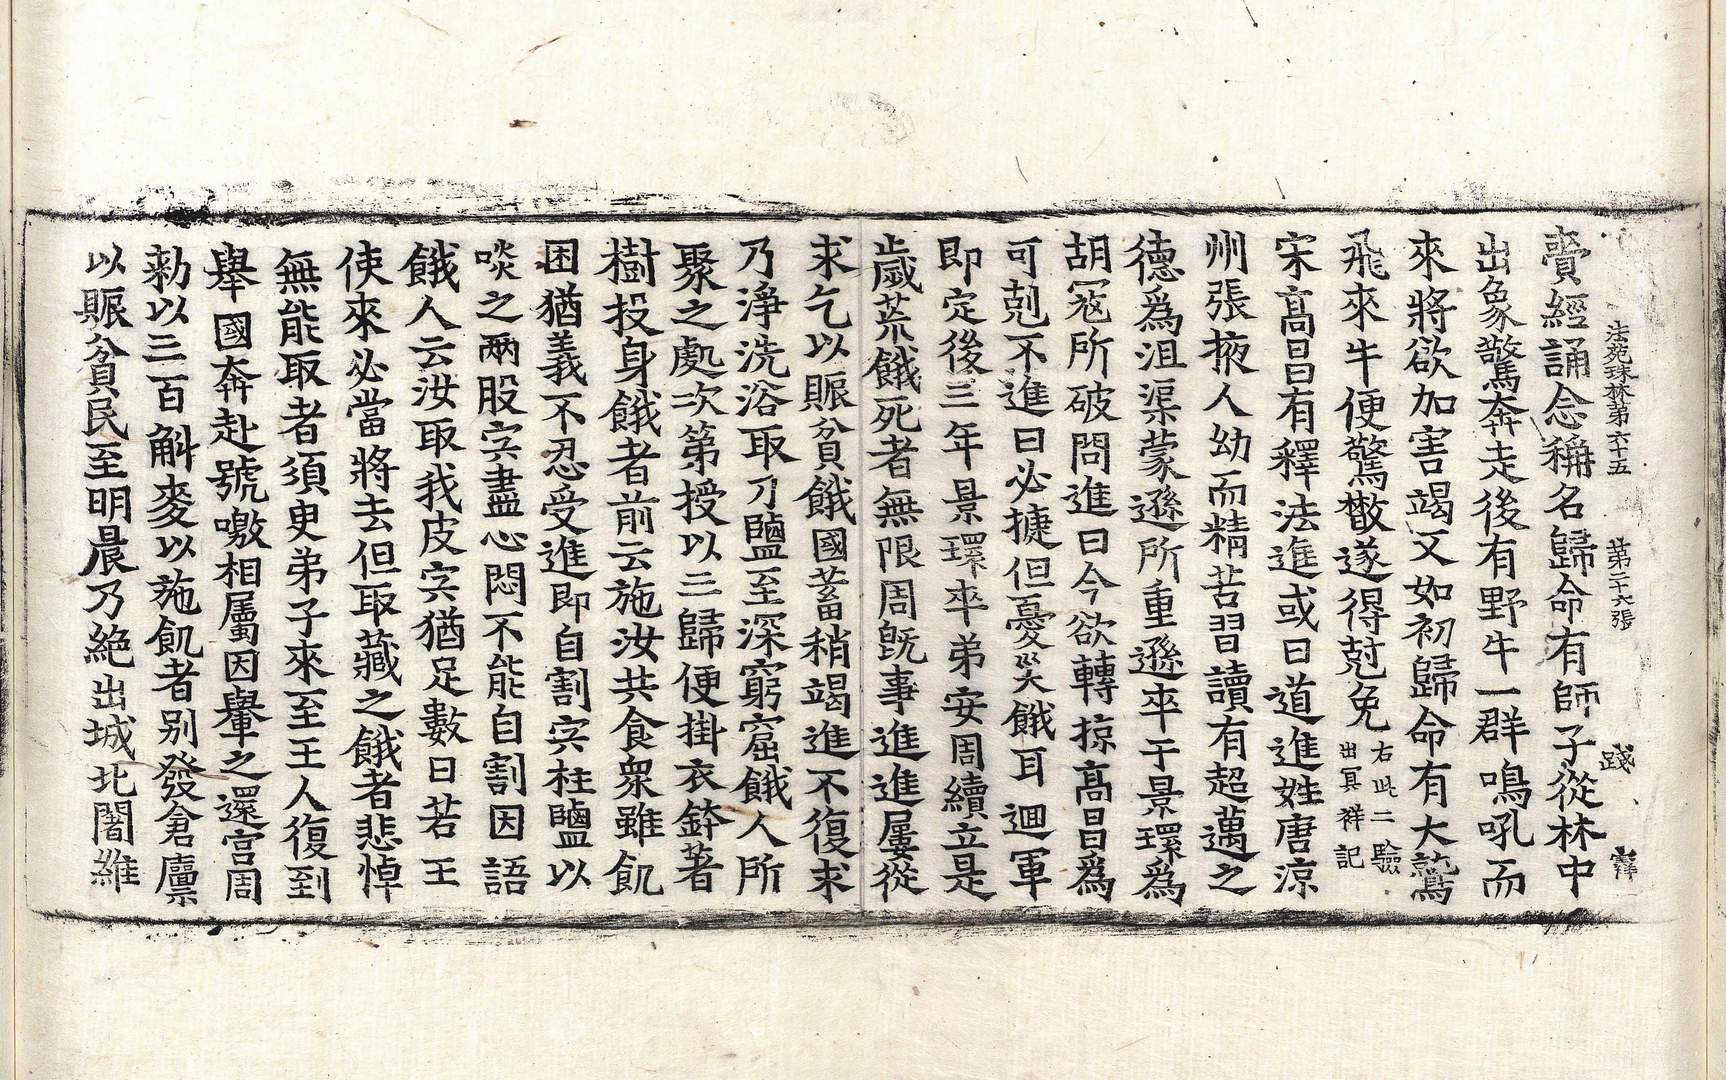 法苑珠林第六十五　第二十六張　踐
賷經誦念稱名歸命有師子從林中
出象驚奔走後有野牛一群鳴吼而
來將欲加害竭又如初歸命有大鷲
飛來牛便驚散遂得尅免右此二驗出冥祥記
宋高昌有釋法進或曰道進姓唐涼
州張掖人幼而精苦習讀有超邁之
德爲沮渠蒙遜所重遜卒于景環爲
胡寇所破問進曰今欲轉掠高昌爲
可剋不進曰必捷但憂災餓耳迴軍
即定後三年景環卒弟安周續立是
歲荒餓死者無限周旣事進進屢從
求乞以賑貧餓國蓄稍竭進不復求
乃淨洗浴取刀鹽至深窮窟餓人所
聚之處次第授以三歸便掛衣鉢著
樹投身餓者前云施汝共食衆雖飢
困猶義不忍受進即自割宍柱鹽以
啖之兩股宍盡心悶不能自割因語
餓人云汝取我皮宍猶足數日若王
使來必當將去但取藏之餓者悲悼
無能取者須臾弟子來至王人復到
舉國奔赴號噭相屬因轝之還宮周
勑以三百斛麥以施飢者別發倉廩
以賑貧民至明晨乃絕出城北闍維